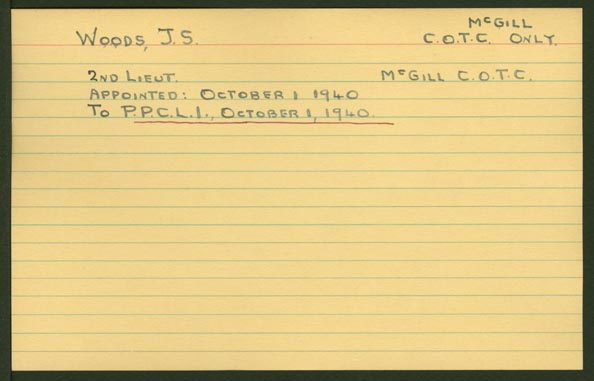 McGILL
WOODS, J.S. C.O.T.C. ONLY.
2ND LIEUT. McGILL C.O.T.C.
APPOINTED: OCTOBER 1 1940
TO P.P.C.L.I., OCTOBER 1, 1940.